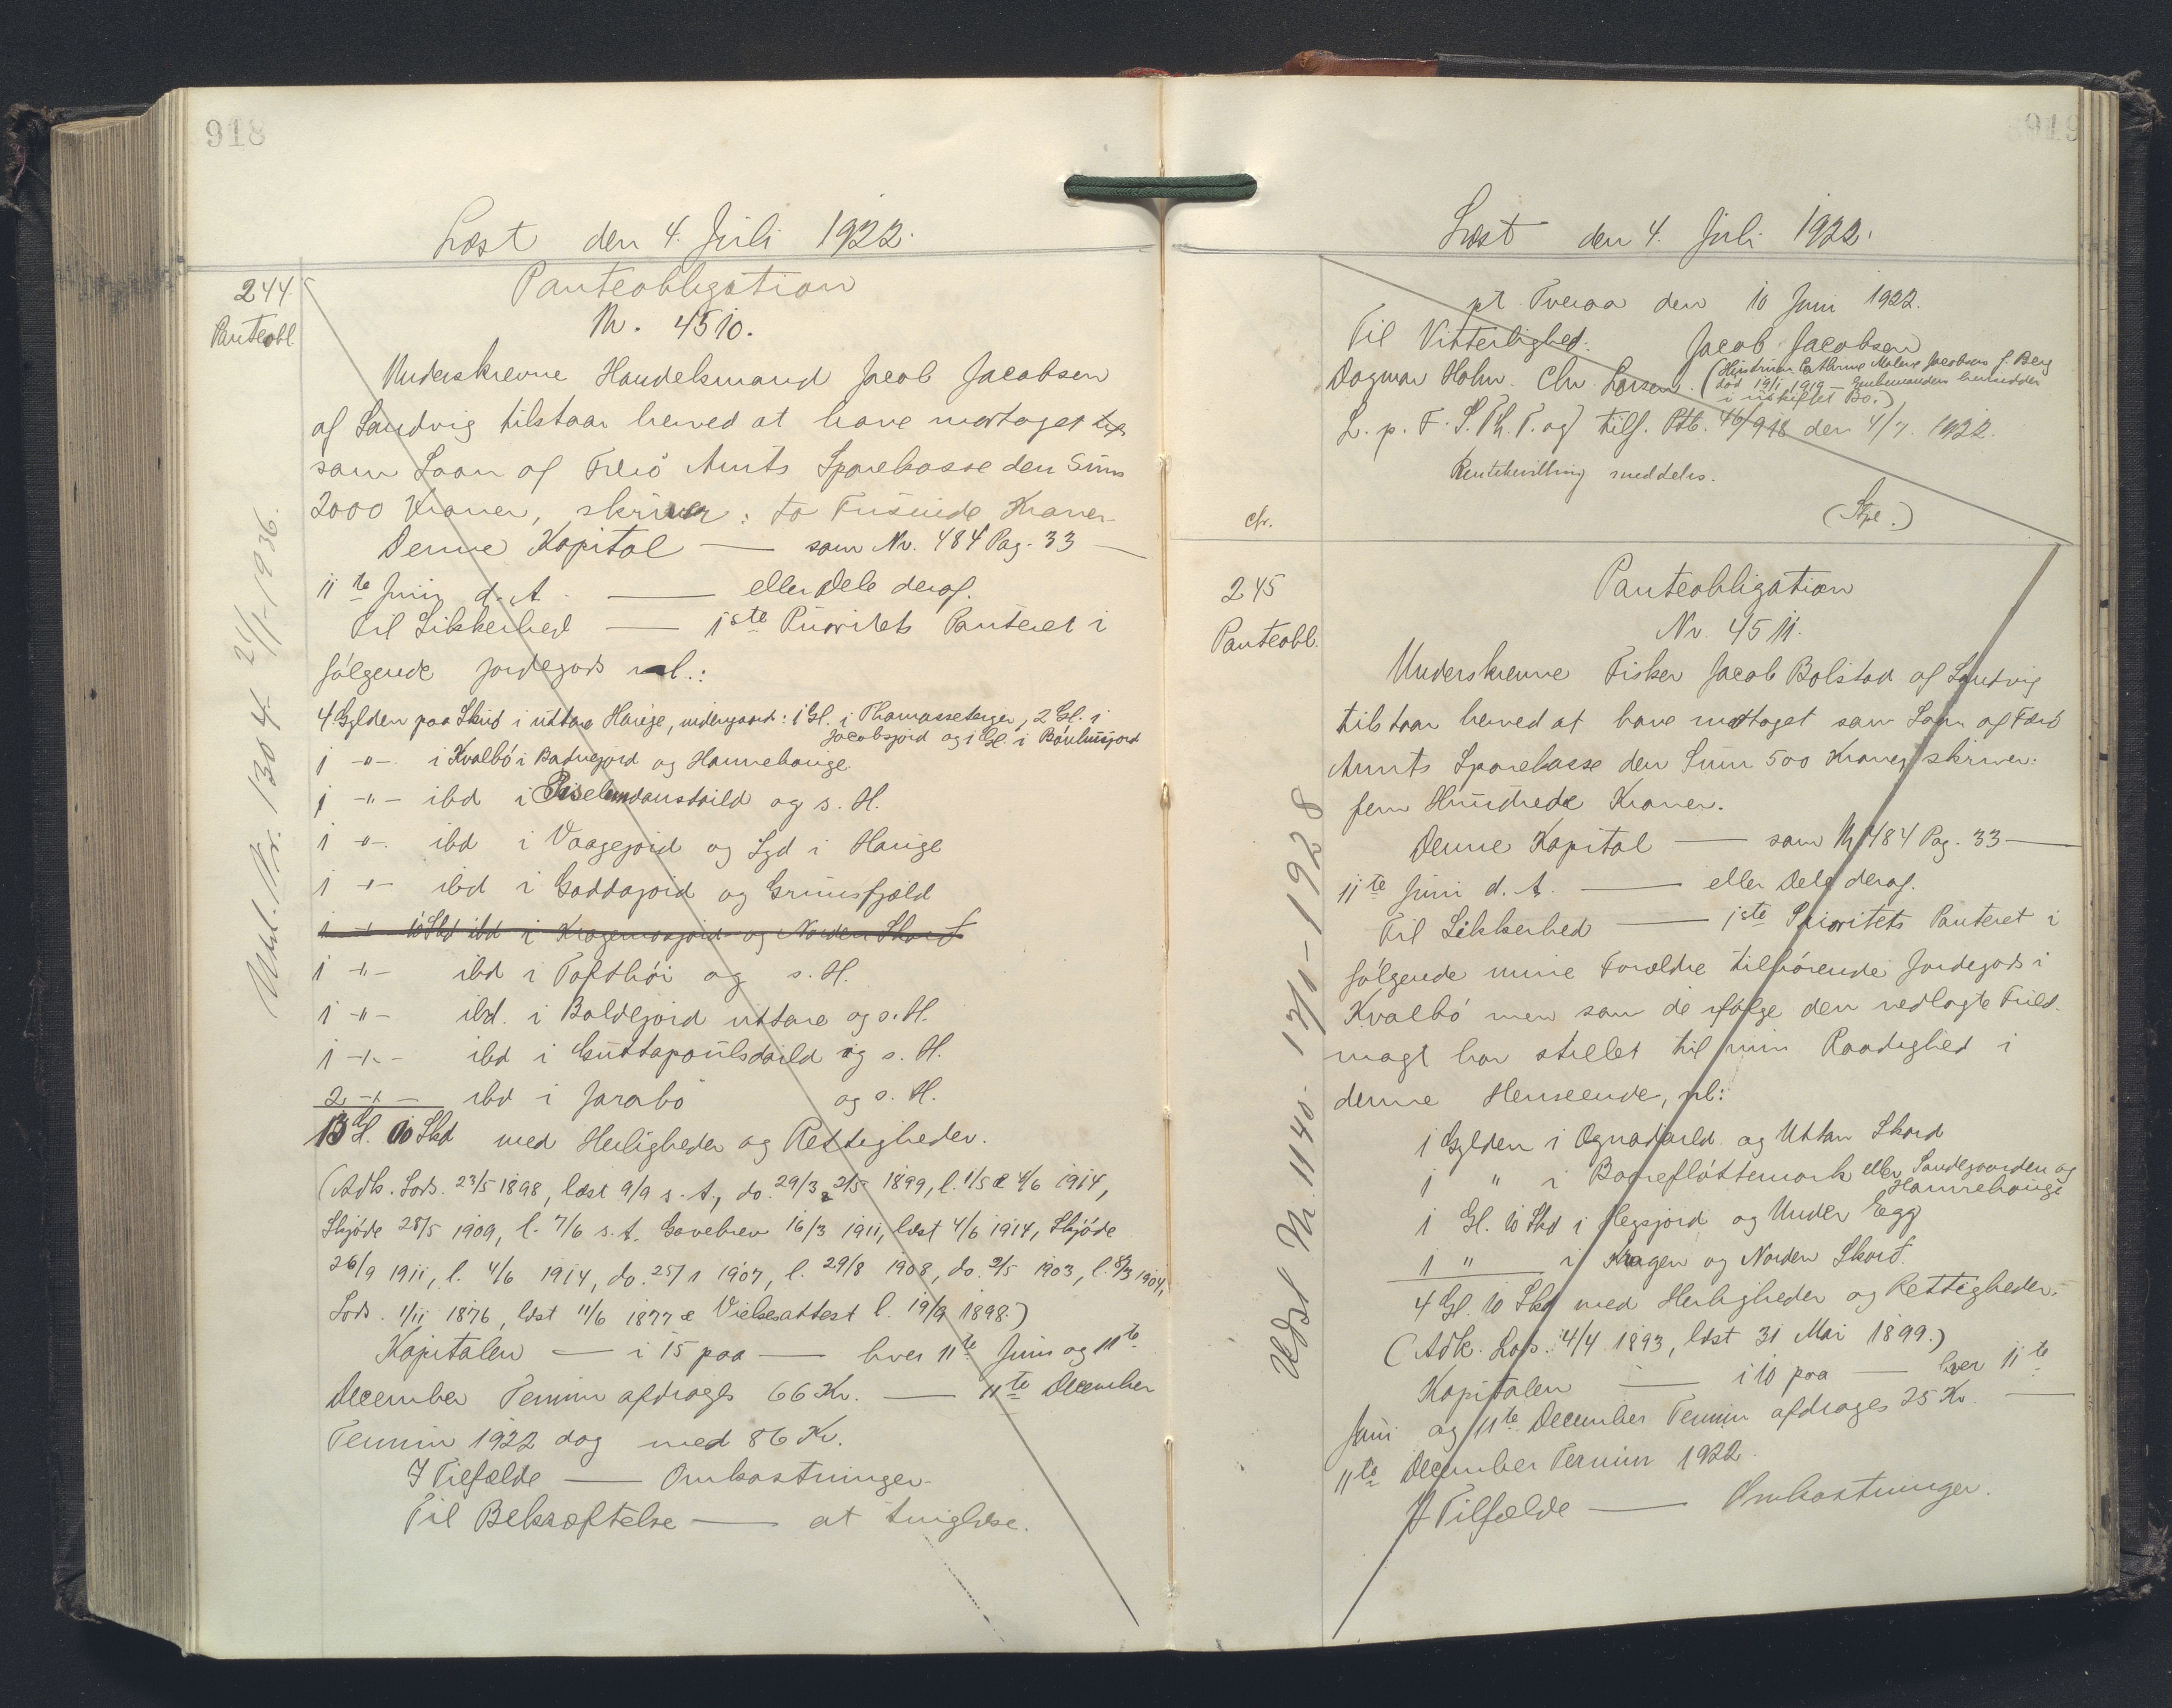 918
Læst den 4. Juli 1922.
244
Panteobl
Panteobligation
Nr. 4510.
Underskrevne Handelsmand Jacob Jacobsen
af Sandvig tilstaar herved at have mottaget
som Laan af Færø Amts Sparekasse den Sum
2000 Kroner, skriver: to Tusinde Kroner
Denne Kapital — som Nr. 484 Pag. 33 —
11te Juni d. A. — eller Dele deraf.
Til Sikkerhed — 1ste Prioritets Panteret i
følgende Jordegods nl.:
4 Gylden paa Skuö i uttara Heuge, undergaard: 1 Gl. i Thomassetarger, 2 Gl. i
Jacobsjord og 1 Gl. i Bönhusjord
1 -"- i Kvalbö i Badnegjord og Hannehouge
1 -"- ibd i og s. H.
1 -"- ibd i Vaagejord og Sgd i Hauge
1 -"- ibd i Gaddajord og Grimsfjæld
1 -"- 10 Skd ibd i Kragemosjord og Norden Skord
1 -"- ibd i Tofthöi og s. H.
1 -"- ibd. i Baldejord uttare og s. H.
1 -"- ibd i Guttapoulsdaild og s. H.
2 -"- ibd i Jarabö og s. H.
13 Gl. 10 Skd med Herligheder og Rettigheder.
(Adk. Lods. 23/5 1898, læst 9/9 s. A., do. 29/3 & 2/5 1899, l. 1/5 & 4/6 1914,
Skjöde 28/5 1909, l. 7/6 s. A. Gavebrev 16/3 1911, læst 4/6 1914, Skjöde
26/9 1911, l. 4/6 1914, do. 25/1 1907, l. 29/8 1908, do. 2/5 1903, l. 8/3 1904,
Lods. 1/11 1876, læst 11/6 1877 & Vielsesattest l. 19/9 1898.)
Kapitalen — i 15 paa — hver 11te Juni og 11te
December Termin afdrages 66 Kr. — 11te December
Termin 1922 dog med 86 Kr.
I Tilfælde — Omkostninger.
Til Bekræftelse — at tinglæse.
Udsl. Nr. 1304 21/1-1936.
919
Læst den 4. Juli 1922.
pt. Tveraa den 10 Juni 1922.
Til Vitterlighed. Jacob Jacobsen
Dagmar Holm. Chr. Larsen. (Hustruen Cathrine Malene Jacobsen f. Berg
död 19/1 1919 — Enkemanden hensidder
i uskiftet Bo.)
L. p. F. S. Th. T. og tilf. Ptb. 46/918 den 4/7. 1922.
Rentebevilling meddeles.
(Spl.)
chr.
245
Panteobl.
Panteobligation
Nr. 4511.
Underskrevne Fisker Jacob Bolstad af Sandvig
tilstaar herved at have mottaget som Laan af Færö
Amts Sparekasse den Sum 500 Kroner skriver:
fem Hundrede Kroner.
Denne Kapital — som Nr 484 Pag. 33 —
11te Juni d. A. — eller Dele deraf.
Til Sikkerhed — 1ste Prioritets Panteret i
følgende mine Forældre tilhörende Jordegods i
Kvalbö men som de ifølge den vedlagte Fuld
magt har stillet til min Raadighed i
denne Henseende, nl:
1 Gylden i Ognadaild og Uttan Skord
1 " i Bakreflöttemork eller Sandegaarden og
Hannehouge
1 Gl. 10 Skd i Hegsjord og Under Egg
1 " i Kragen og Norden Skord.
4 Gl. 10 Skd med Herligheder og Rettigheder.
(Adk. Lods. 14/4 1893, læst 31 Mai 1899.)
Kapitalen — i 10 paa — hver 11te
Juni og 11te December Termin afdrages 25 Kr. —
11te December Termin 1922.
I Tilfælde — Omkostninger.
Udsl Nr. 1140. 13/1-1928